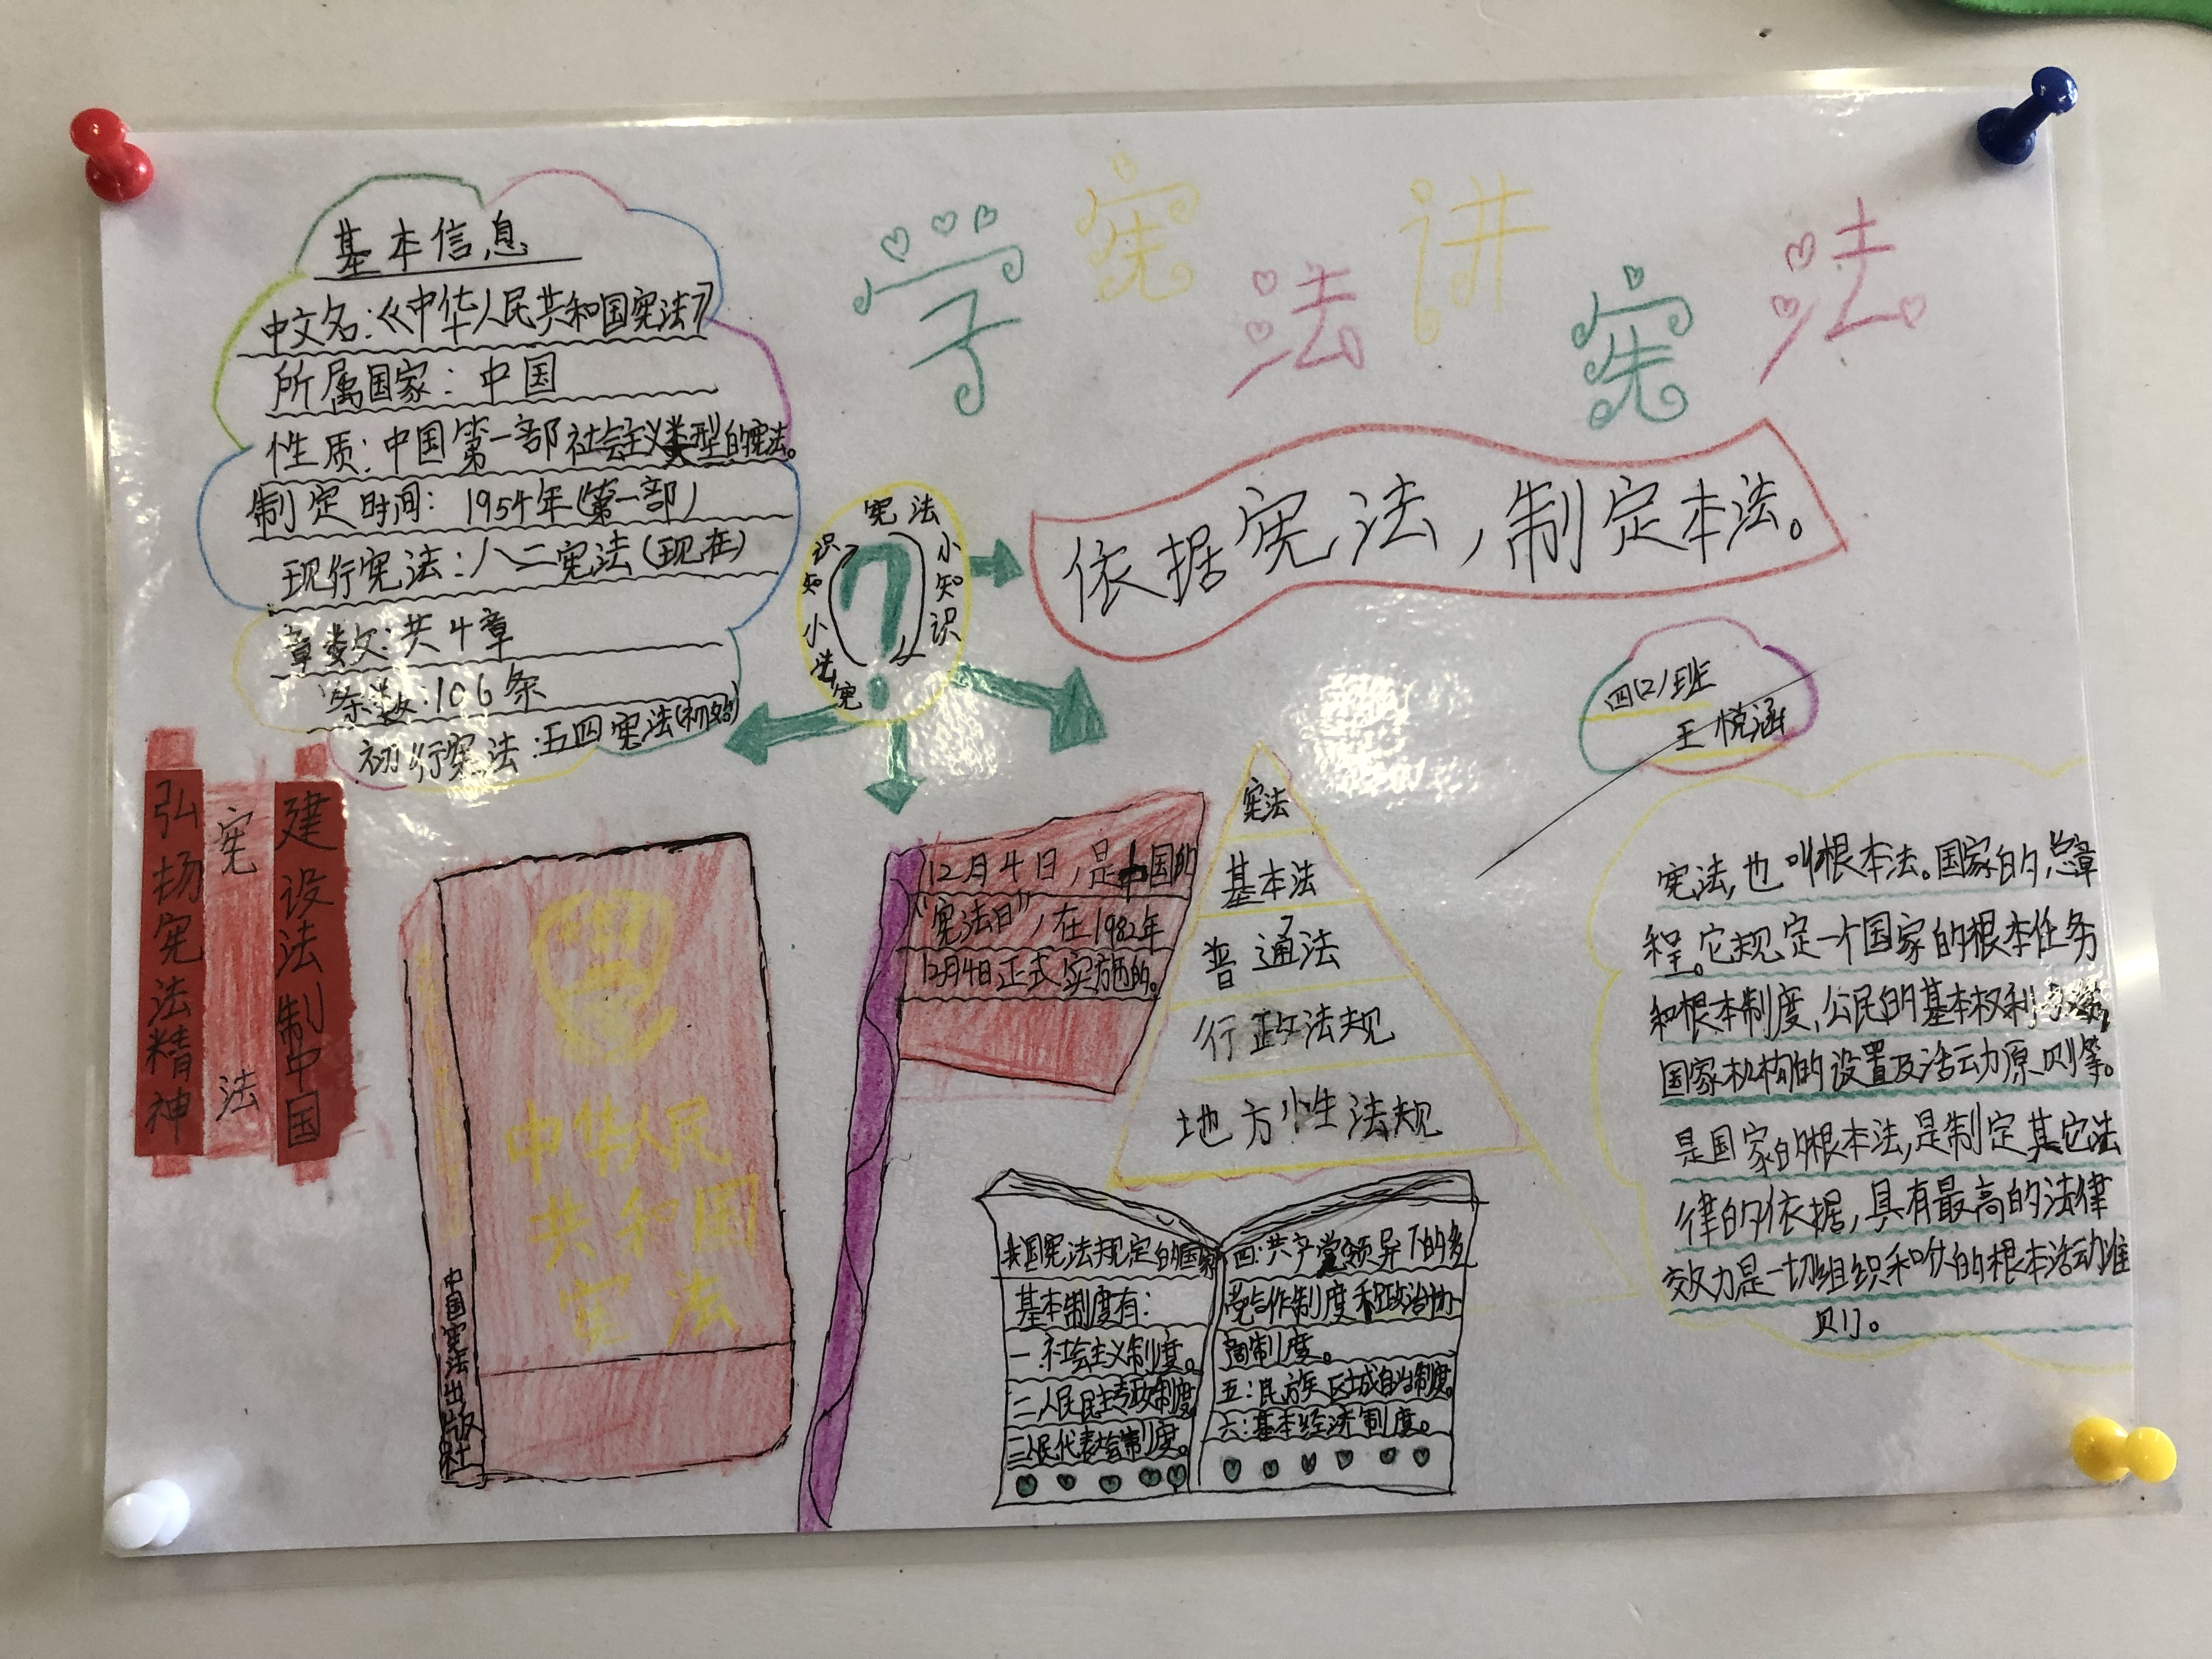 学宪法讲宪法
基本信息
中文名:《中华人民共和国宪法》
所属国家:中国
性质:中国第一部社会主义类型的宪法。
制定时间:1954年(第一部)
现行宪法:八二宪法(现在)
章数:共4章
条数:106条
初行宪法:五四宪法(初始)
宪法小知识
宪法小知识
?
依据宪法,制定本法。
四(2)班
王悦涵
弘扬宪法精神
宪法
建设法制中国
中华人民
共和国
宪法
中国宪法出版社
12月4日,是中国的
“宪法日”,在1982年
12月4日正式实施的。
宪法
基本法
普通法
行政法规
地方性法规
我国宪法规定的国家
基本制度有:
一.社会主义制度。
二人民民主专政制度
三人民代表大会制度。
四:共产党领导下的多
党合作制度和政治协
商制度。
五:民族区域自治制度。
六:基本经济制度。
宪法,也叫根本法。国家的总章
程。它规定一个国家的根本任务
和根本制度,公民的基本权利
国家机构的设置及活动原则等。
是国家的根本法,是制定其它法
律的依据,具有最高的法律
效力是一切组织和个人的根本活动准
则。